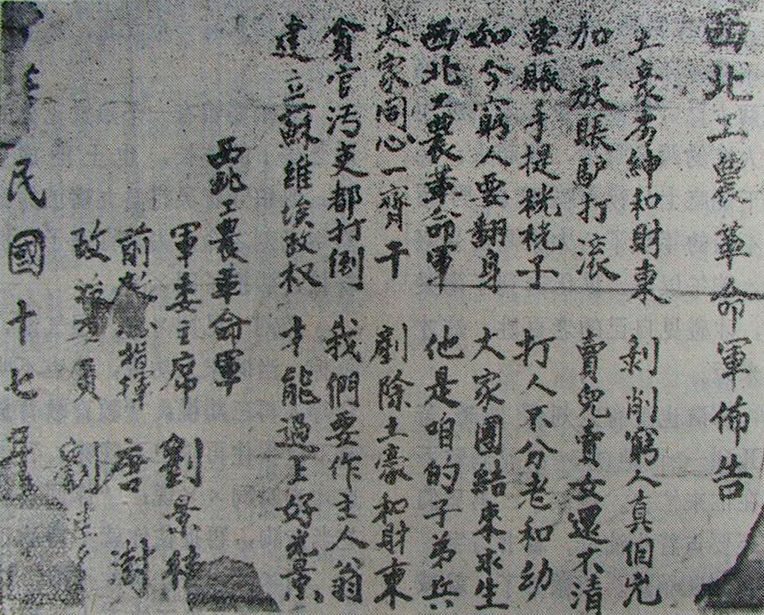 西北工農革命軍佈告
土豪劣紳和財東 剥削窮人真個兇
加一放賬驴打滾 賣兒賣女還不清
要賬手提桄桄子 打人不分老和幼
如今窮人要翻身 大家團結來求生
西北工農革命軍 他是咱的子弟兵
大家同心一齊干 剷除土豪和財東
貪官污吏都打倒 我們要作主人翁
建立蘇維埃政权 才能過上好光景
西北工農革命軍
軍委主席 劉景桂
前敵總指揮 唐澍
政 委員 劉
民國十七年